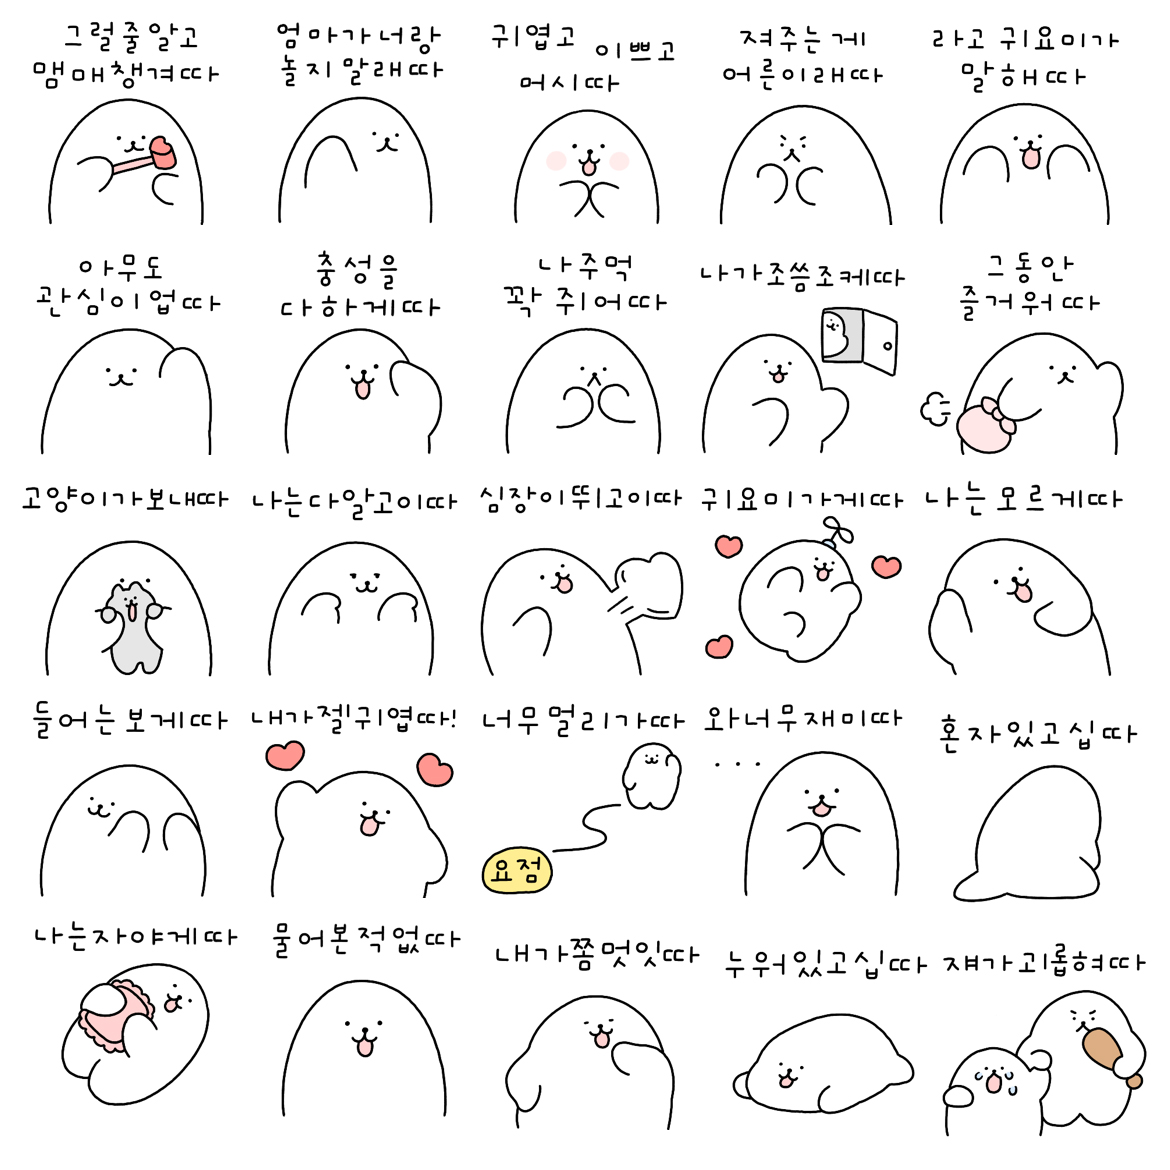 그럴줄알고
맴매챙겨따
엄마가너랑
놀지말래따
귀엽고
이쁘고
머시따
져주는게
어른이래따
라고 귀요미가
말해따
아무도
관심이업따
충성을
다하게따
나주먹
꽉 쥐어따
나가조씀조케따
그동안
즐거워따
고양이가보내따
나는다알고이따
심장이뛰고이따
귀요미가게따
나는모르게따
들어는보게따
내가젤!귀엽따!
너무멀리가따
요점
와너무재미따
...
혼자있고십따
나는자야게따
물어본적없따
내가쫌멋잇따
누워있고십따
쟤가괴롭혀따